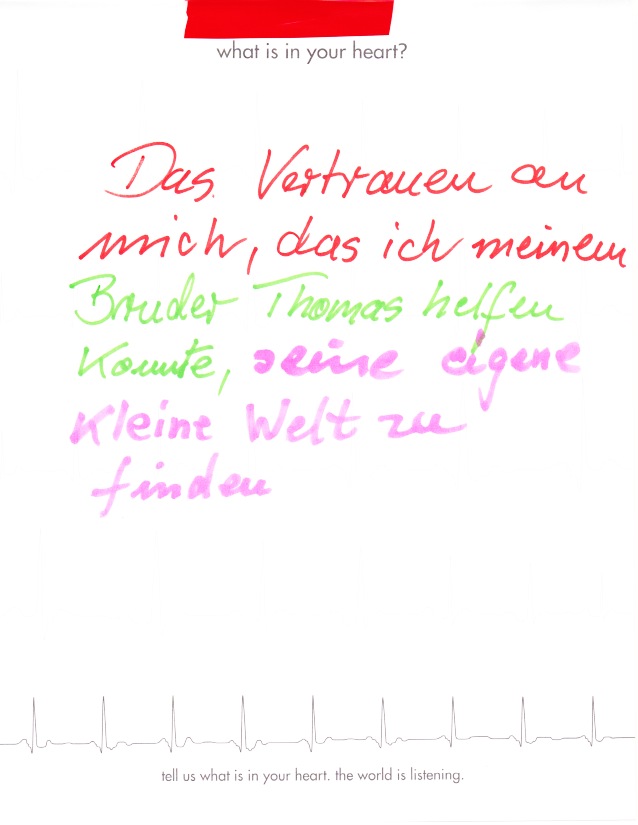 what is in your heart?
Das Vertrauen an
mich, das ich meinem
Bruder Thomas helfen
konnte, seine eigene
kleine Welt zu
finden
tell us what is in your heart. the world is listening.